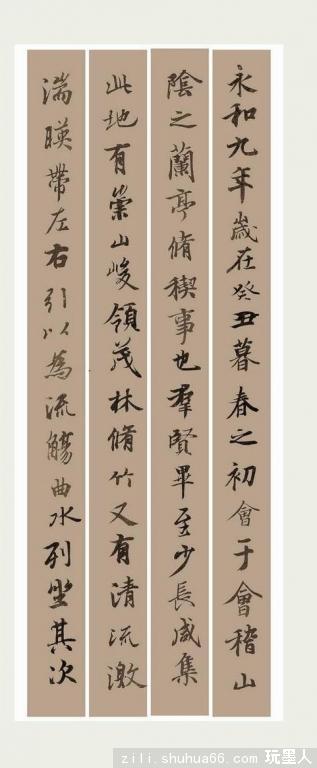 永和九年歲在癸丑暮春之初會于會稽山
陰之蘭亭脩稧事也羣賢畢至少長咸集
此地有崇山峻領茂林脩竹又有清流激
湍暎帶左右引以為流觴曲水列坐其次
zili.shuhua66.com 玩墨人